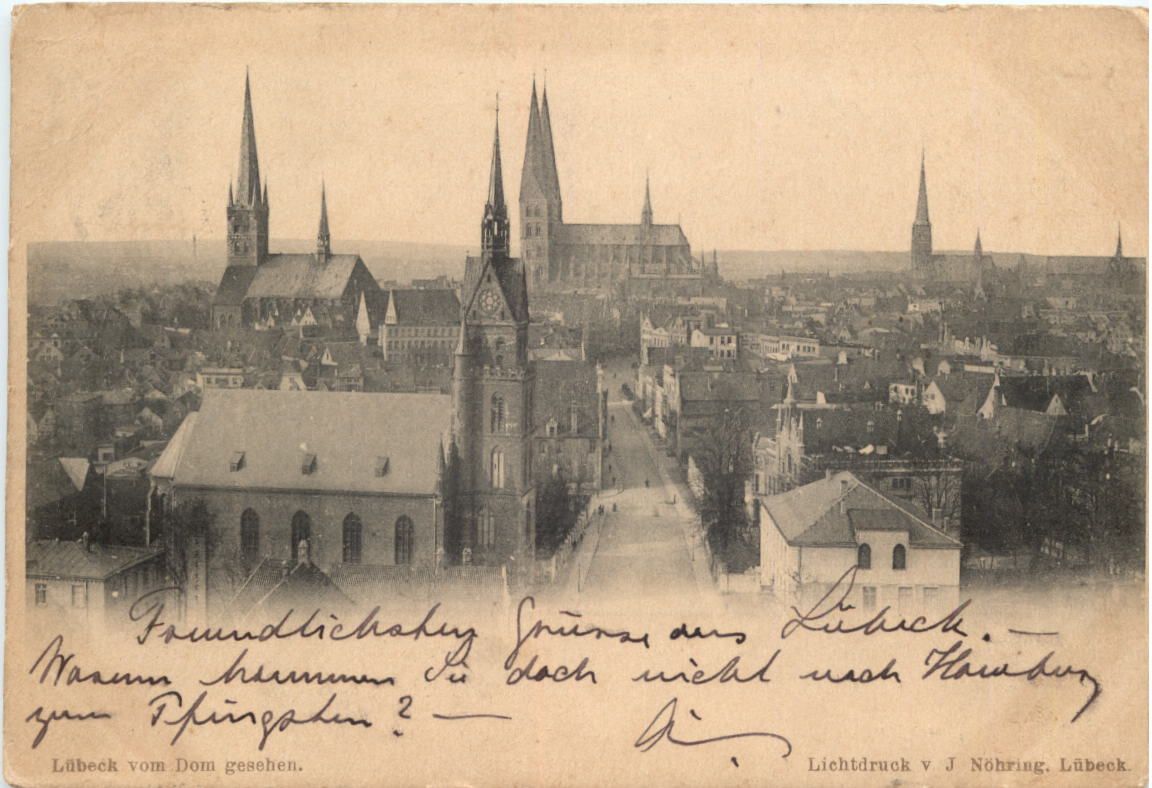 Freundlichsten Grüsse aus Lübeck. —
Warum kommen Sie doch nicht nach Hamburg
zum Pfingsten? —
Lübeck vom Dom gesehen.
Lichtdruck v J Nöhring, Lübeck.